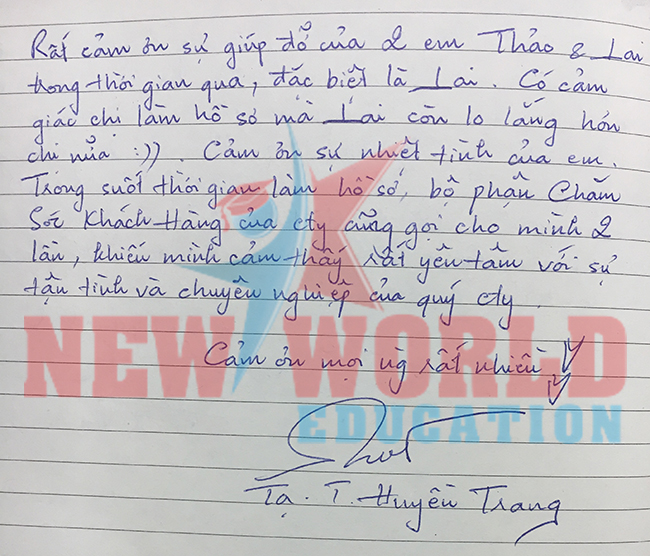 Rất cảm ơn sự giúp đỡ của 2 em Thảo & Lai
trong thời gian qua, đặc biệt là Lai. Có cảm
giác chị làm hồ sơ mà Lai còn lo lắng hơn
chị nữa :)). Cảm ơn sự nhiệt tình của em.
Trong suốt thời gian làm hồ sơ, bộ phận Chăm
Sóc Khách Hàng của cty cũng gọi cho mình 2
lần, khiến mình cảm thấy rất yên tâm với sự
tận tình và chuyên nghiệp của quý cty.
Cảm ơn mọi ng rất nhiều!!
NEW WORLD
EDUCATION
Tạ. T. Huyền Trang